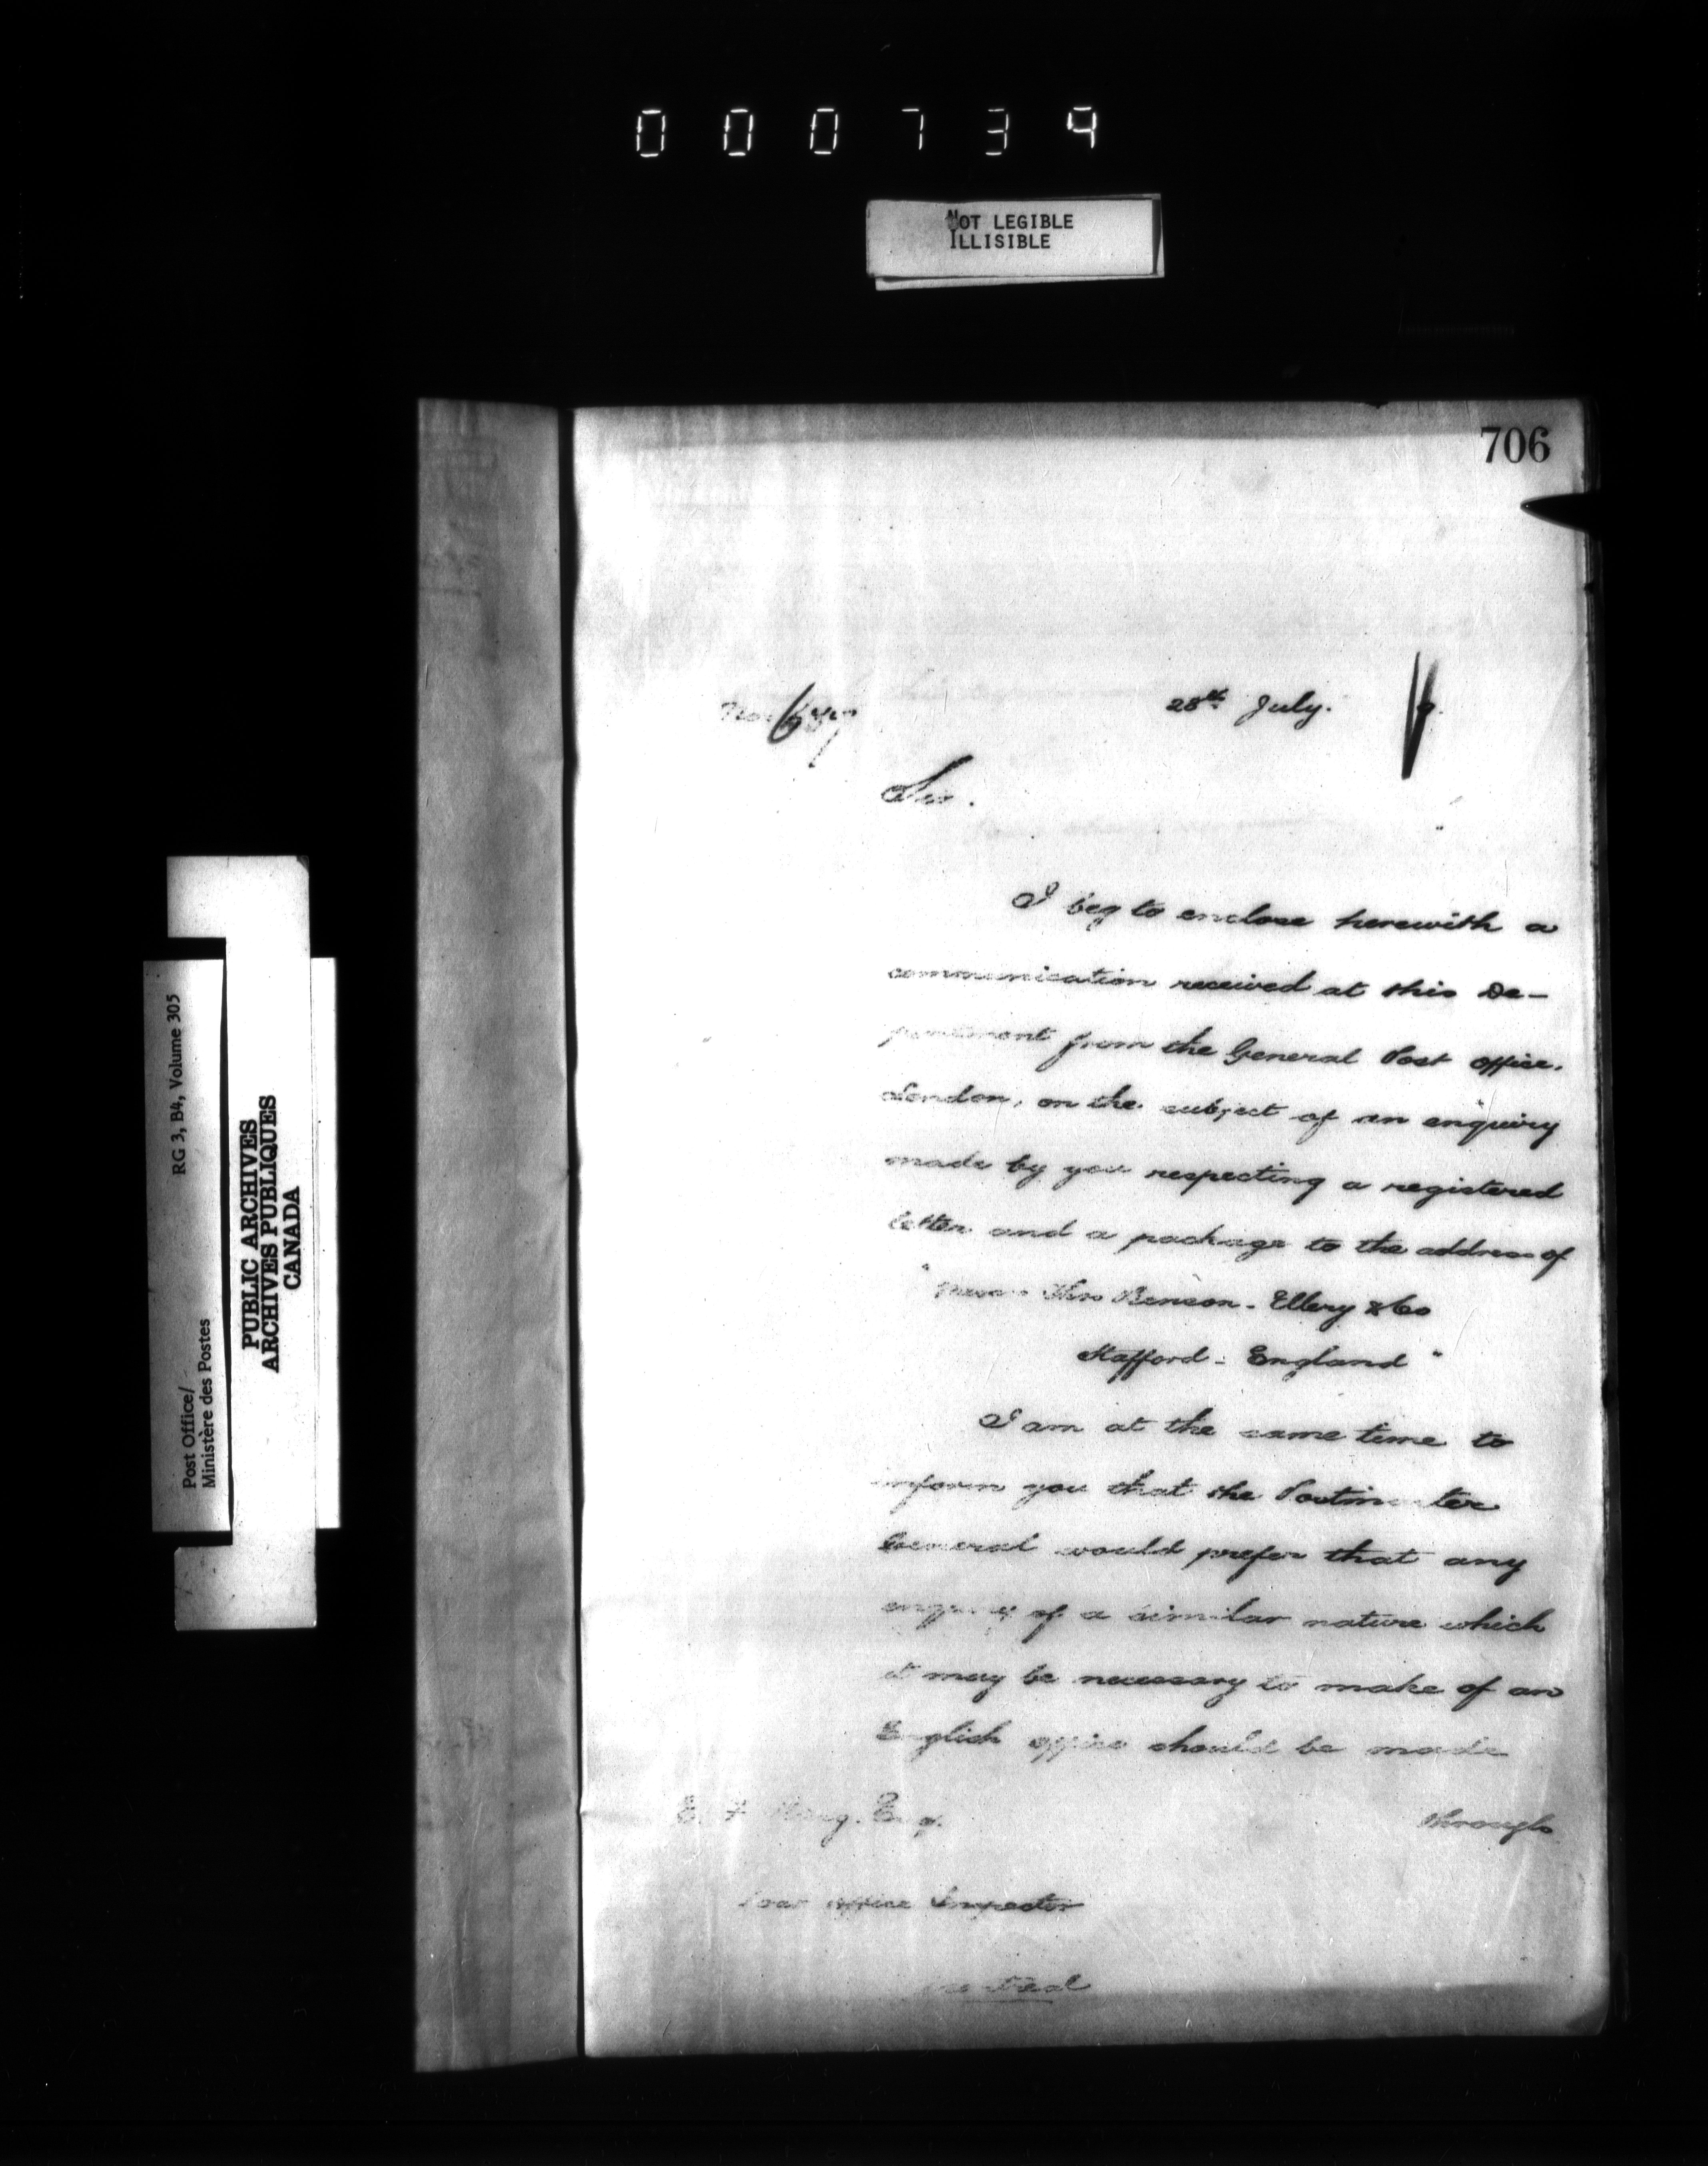 000739
NOT LEGIBLE
ILLISIBLE
706
28th July.
Sir.
I beg to enclose herewith a
communication received at this De-
partment from the General Post Office,
London, on the subject of an enquiry
made by you respecting a registered
letter and a package to the address of
" Messrs Thos Benson - Ellery & Co
Stafford - England "
I am at the same time to
inform you that the Postmaster
General would prefer that any
enquiry of a similar nature which
it may be necessary to make of an
English office should be made
through
E. F. King. Esq.
Post Office Inspector
Montreal
Post Office/
Ministère des Postes
RG 3, B4, Volume 305
PUBLIC ARCHIVES
ARCHIVES PUBLIQUES
CANADA